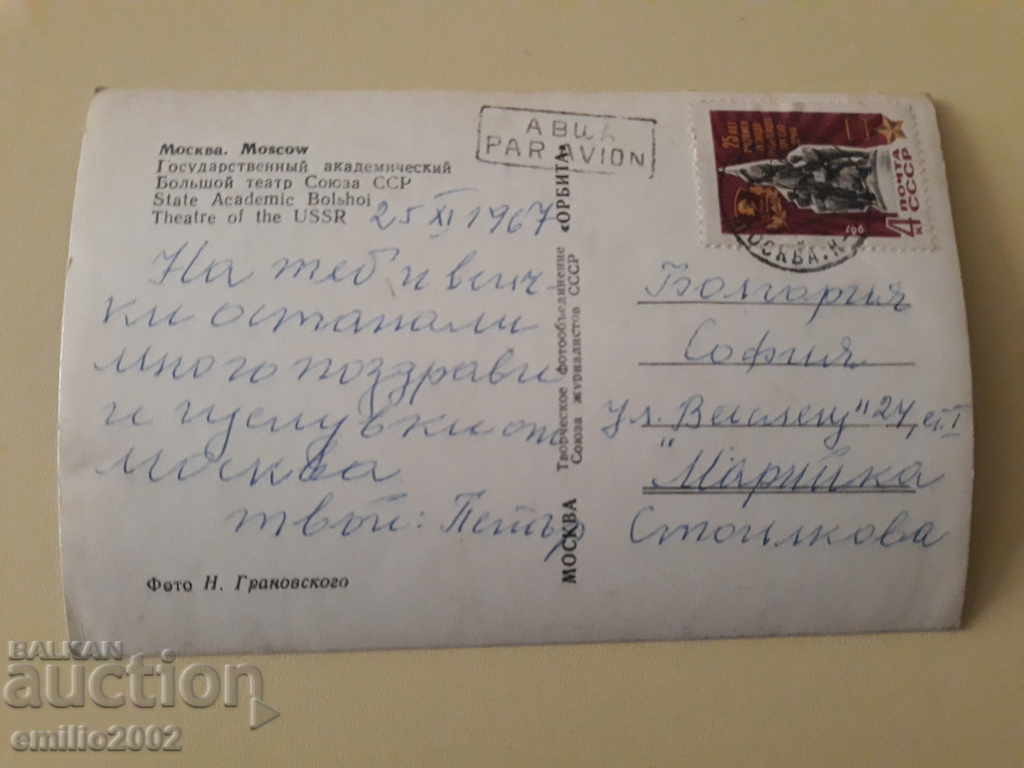 Москва. Moscow
Государственный академический
Большой театр Союза ССР
State Academic Bolshoi
Theatre of the USSR
25 XI 1967
На теб и всич-
ки останали
много поздрави
и целувки от
Москва
твой: Петър
Фото Н. Грановского
АВИА
PAR AVION
МОСКВА Творческое фотообъединение «ОРБИТА»
Союза журналистов СССР
25 лет
ПОЧТА
СССР
4 к
196
МОСКВА
Болгария
София
ул. "24, ет. I
"Марийка
Стоилкова
BALKAN
auction
emilio2002